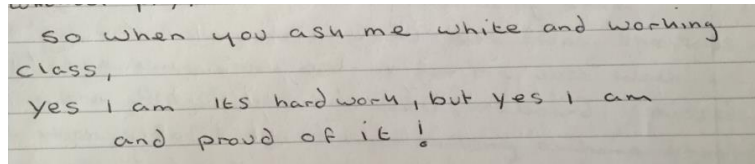 so when you ask me white and working
class,
yes i am its hard work, but yes i am
and proud of it!